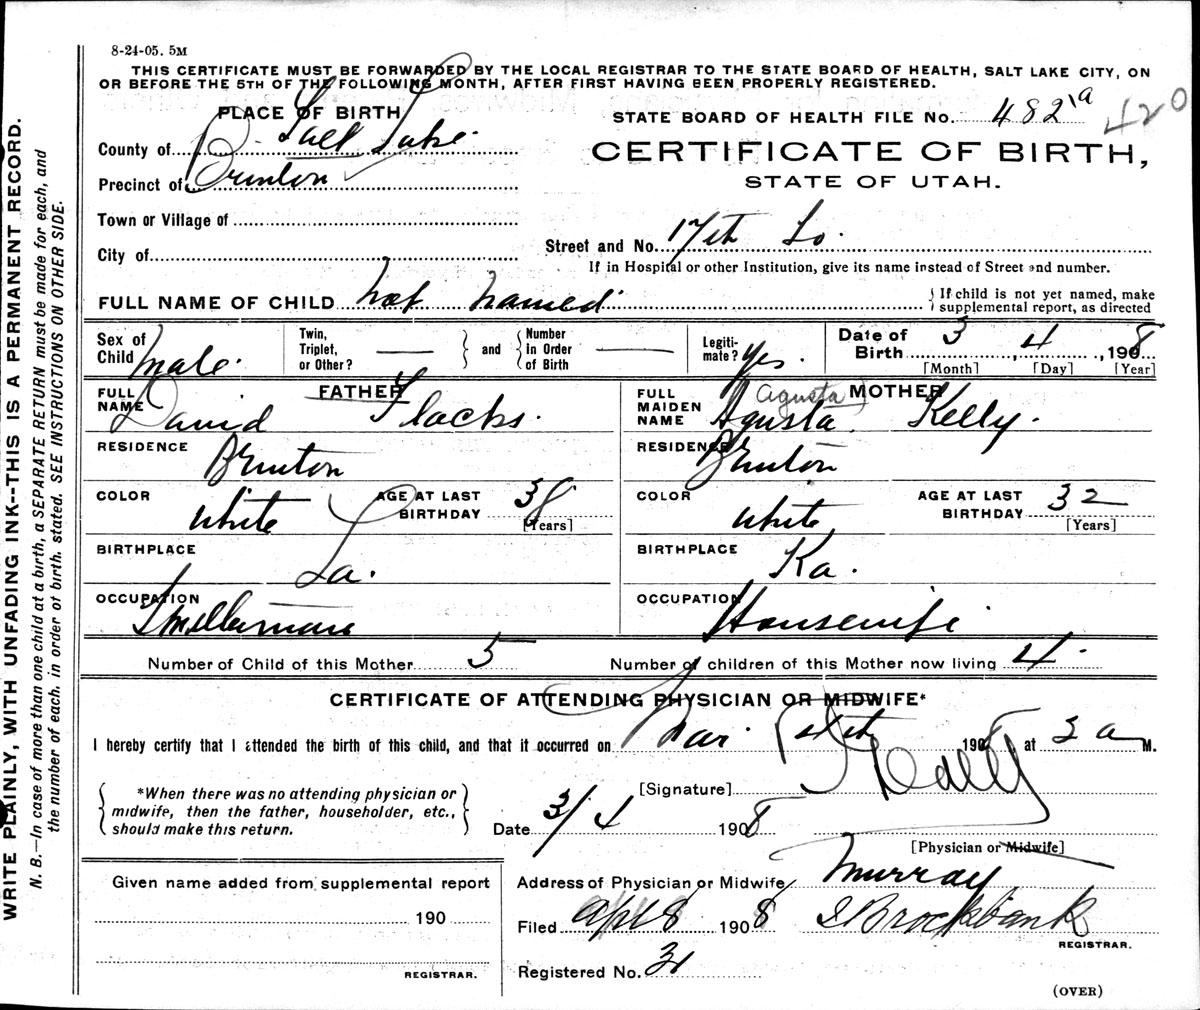 8-24-05. 5M
THIS CERTIFICATE MUST BE FORWARDED BY THE LOCAL REGISTRAR TO THE STATE BOARD OF HEALTH, SALT LAKE CITY, ON
OR BEFORE THE 5TH OF THE FOLLOWING MONTH, AFTER FIRST HAVING BEEN PROPERLY REGISTERED.
PLACE OF BIRTH
STATE BOARD OF HEALTH FILE No. 482 1a 420
County of Salt Lake
CERTIFICATE OF BIRTH,
Precinct of Brinton
STATE OF UTAH.
Town or Village of
Street and No. 17th So.
City of
If in Hospital or other Institution, give its name instead of Street and number.
FULL NAME OF CHILD Not named
If child is not yet named, make
supplemental report, as directed
Sex of Child Male.
Twin, Triplet, or Other? and Number in Order of Birth
Legiti-mate? Yes
Date of Birth 3, 4, 1908
[Month] [Day] [Year]
FATHER
FULL NAME David Flacks.
MOTHER
FULL MAIDEN NAME Agusta (Agusta) Kelly.
RESIDENCE Brinton
RESIDENCE Brinton
COLOR White AGE AT LAST BIRTHDAY 38 [Years]
COLOR White AGE AT LAST BIRTHDAY 32 [Years]
BIRTHPLACE La.
BIRTHPLACE Ka.
OCCUPATION Smelterman
OCCUPATION Housewife
Number of Child of this Mother 5
Number of children of this Mother now living 4
CERTIFICATE OF ATTENDING PHYSICIAN OR MIDWIFE*
I hereby certify that I attended the birth of this child, and that it occurred on Mar. 1908, at 3 a M.
*When there was no attending physician or
midwife, then the father, householder, etc.,
should make this return.
[Signature]
Date 3/4 1908
[Physician or Midwife]
Address of Physician or Midwife Murray
Given name added from supplemental report
190
REGISTRAR.
Filed Apl 8 1908 Brockbank
REGISTRAR.
Registered No. 31
(OVER)
WRITE PLAINLY, WITH UNFADING INK--THIS IS A PERMANENT RECORD.
N. B.—In case of more than one child at a birth, a SEPARATE RETURN must be made for each, and
the number of each, in order of birth, stated. SEE INSTRUCTIONS ON OTHER SIDE.